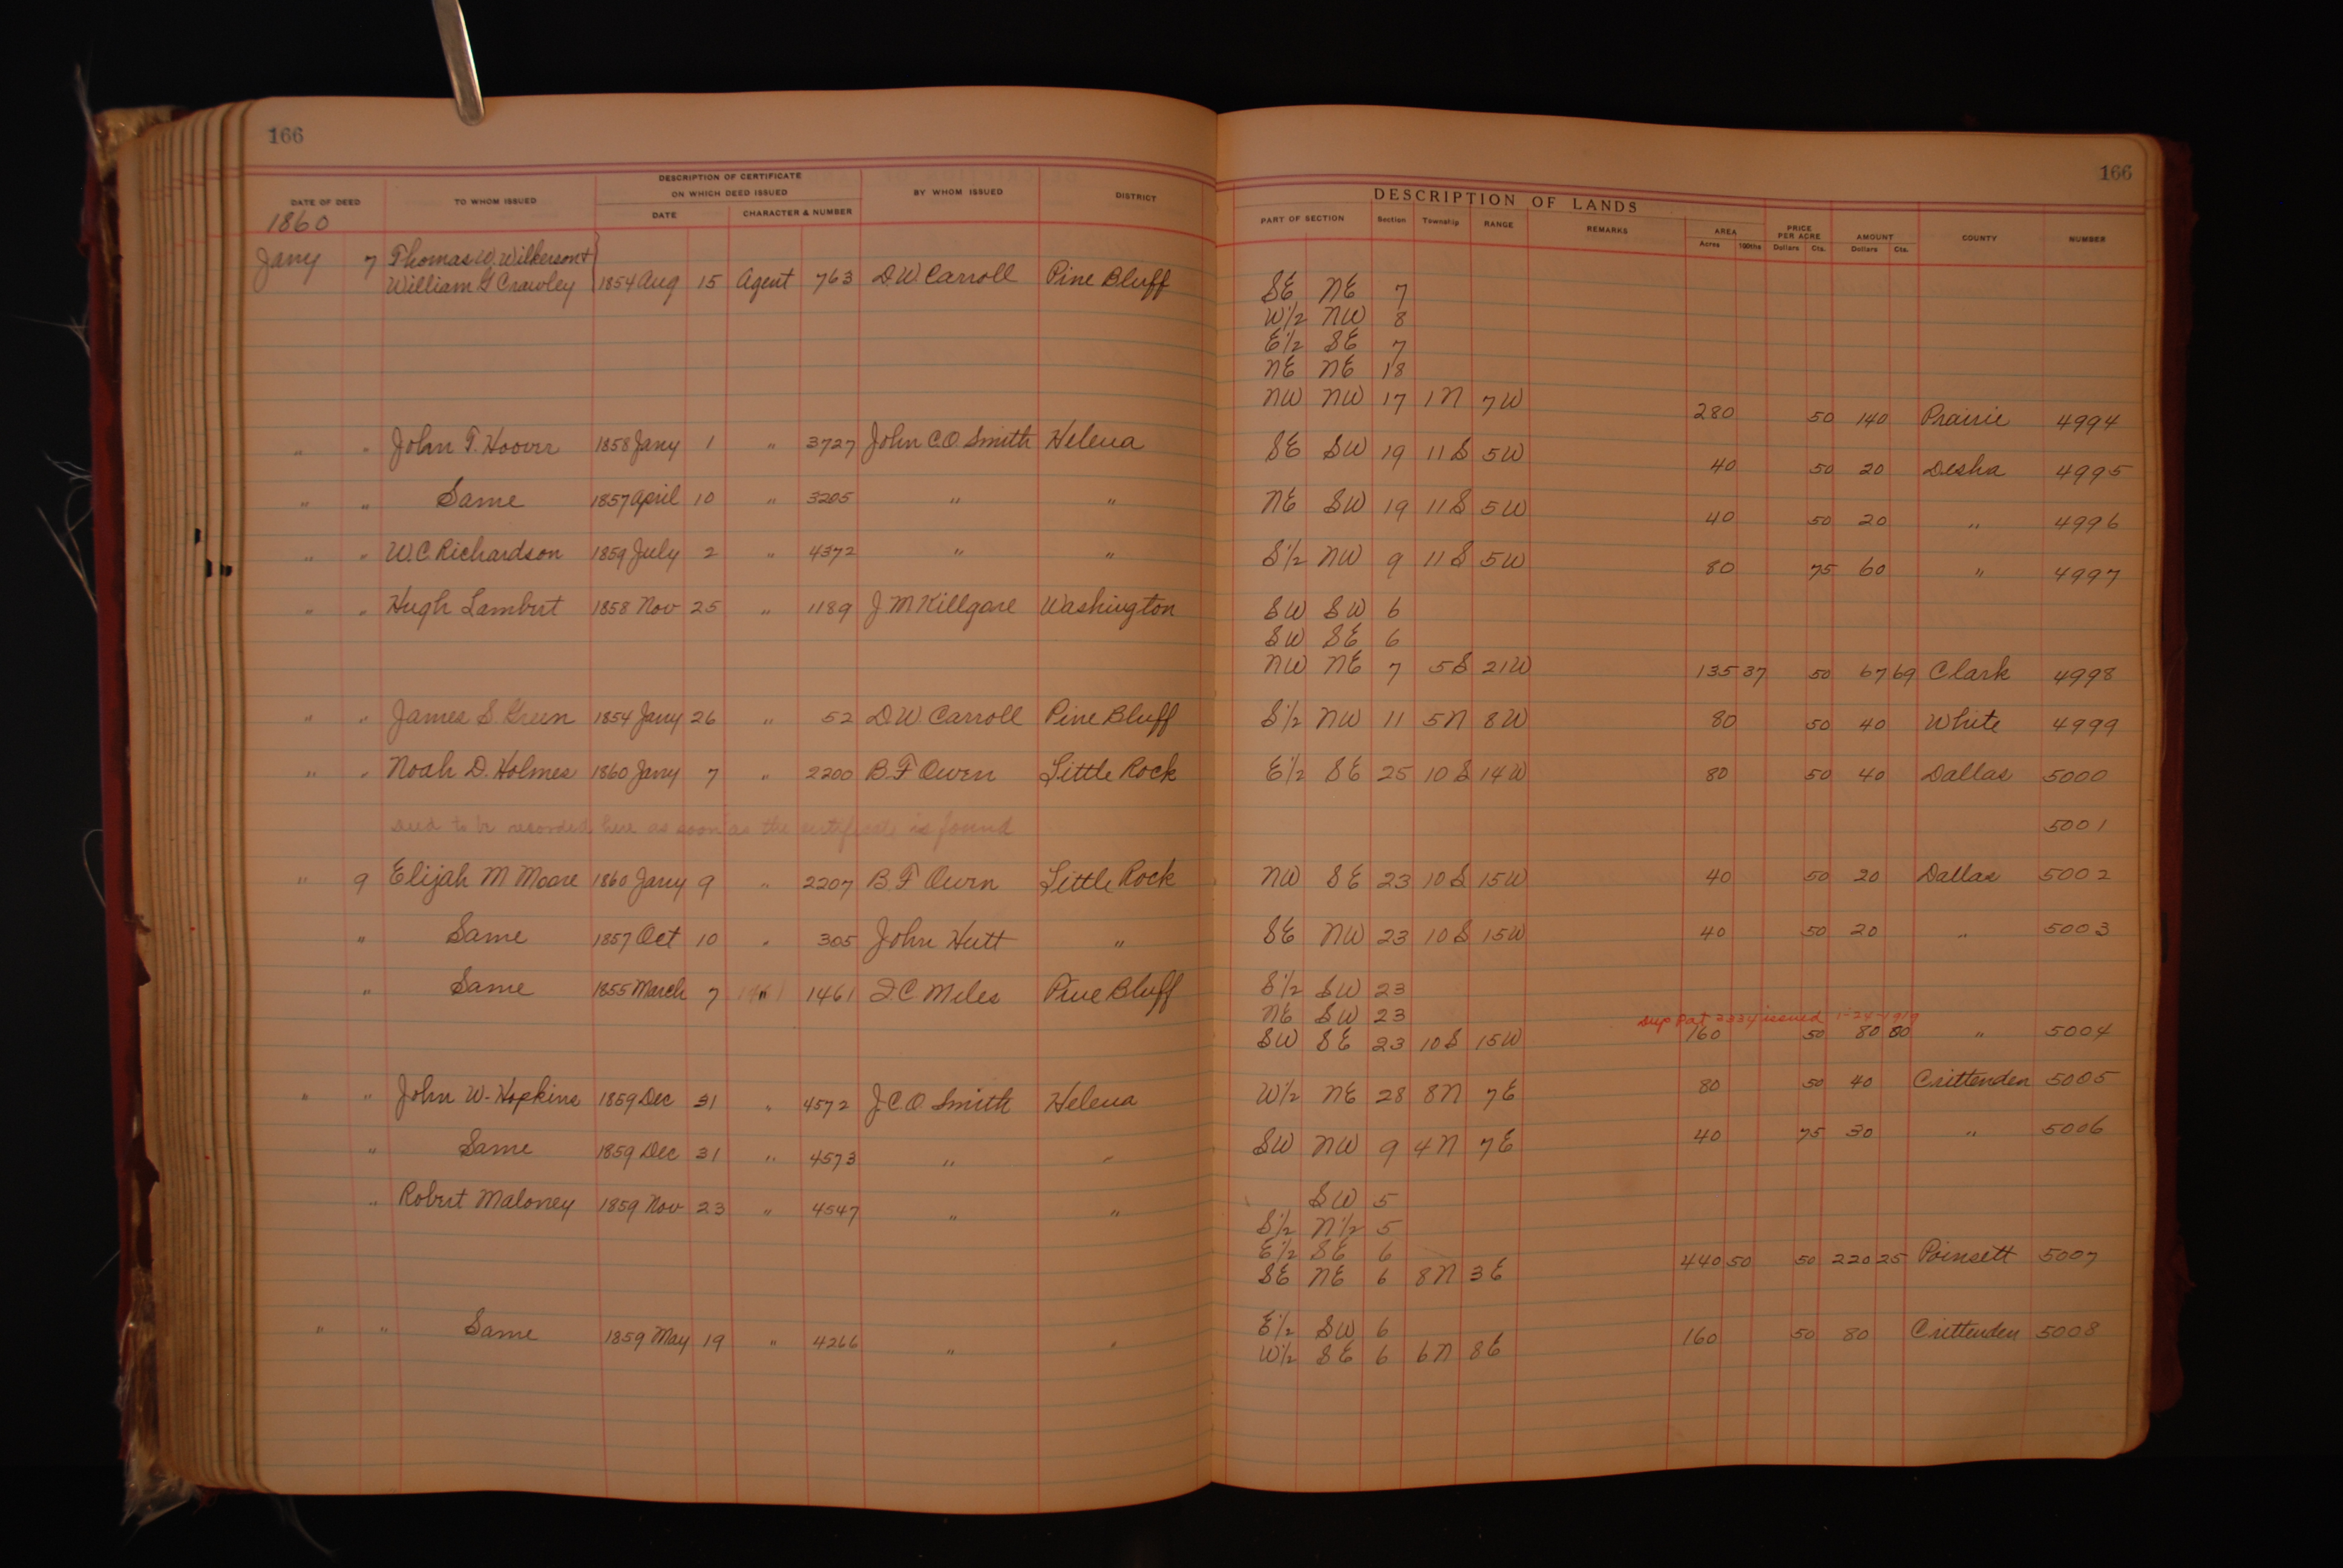 166
DATE OF DEED TO WHOM ISSUED DESCRIPTION OF CERTIFICATE ON WHICH DEED ISSUED DATE CHARACTER & NUMBER BY WHOM ISSUED DISTRICT
1860
Jany 7 Thomas W. Wilkerson +
William G Crawley 1854 Aug 15 Agent 763 D.W. Carroll Pine Bluff
" " John T. Hoover 1858 Jany 1 " 3727 John C.O. Smith Helena
" " Same 1857 April 10 " 3205 " "
" " W.C. Richardson 1859 July 2 " 4372 " "
" " Hugh Lambert 1858 Nov 25 " 1189 J.M Killgore Washington
" " James S. Green 1854 Jany 26 " 52 D.W. Carroll Pine Bluff
" " Noah D. Holmes 1860 Jany 7 " 2200 B.F Owen Little Rock
Deed to be recorded here as soon as the certificate is found
" 9 Elijah M Moore 1860 Jany 9 " 2207 B F Owen Little Rock
" Same 1857 Oct 10 " 305 John Hutt "
" Same 1855 March 7 " 1461 J.C. Miles Pine Bluff
" " John W. Hopkins 1859 Dec 31 " 4572 J.C.O Smith Helena
" Same 1859 Dec 31 " 4573 " "
" Robert Maloney 1859 Nov 23 " 4547 " "
" " Same 1859 May 19 " 4266 " "
166
DESCRIPTION OF LANDS
PART OF SECTION Section Township RANGE REMARKS AREA Acres 100ths PRICE PER ACRE Dollars Cts. AMOUNT Dollars Cts. COUNTY NUMBER
SE NE 7
W½ NW 8
E½ SE 7
NE NE 18
NW NW 17 1N 7W 280 50 140 Prairie 4994
SE SW 19 11S 5W 40 50 20 Desha 4995
NE SW 19 11S 5W 40 50 20 " 4996
S½ NW 9 11S 5W 80 75 60 " 4997
SW SW 6
SW SE 6
NW NE 7 5S 21W 135 37 50 67 69 Clark 4998
S½ NW 11 5N 8W 80 50 40 White 4999
E½ SE 25 10S 14W 80 50 40 Dallas 5000
5001
NW SE 23 10S 15W 40 50 20 Dallas 5002
SE NW 23 10S 15W 40 50 20 " 5003
S½ SW 23
NE SW 23
Sup Pat 2334 issued 1-24-1919
SW SE 23 10S 15W 160 50 80 00 " 5004
W½ NE 28 8N 7E 80 50 40 Crittenden 5005
SW NW 9 4N 7E 40 75 30 " 5006
SW 5
S½ N½ 5
E½ SE 6
SE NE 6 8N 3E 440 50 50 220 25 Poinsett 5007
E½ SW 6
W½ SE 6 6N 8E 160 50 80 Crittenden 5008